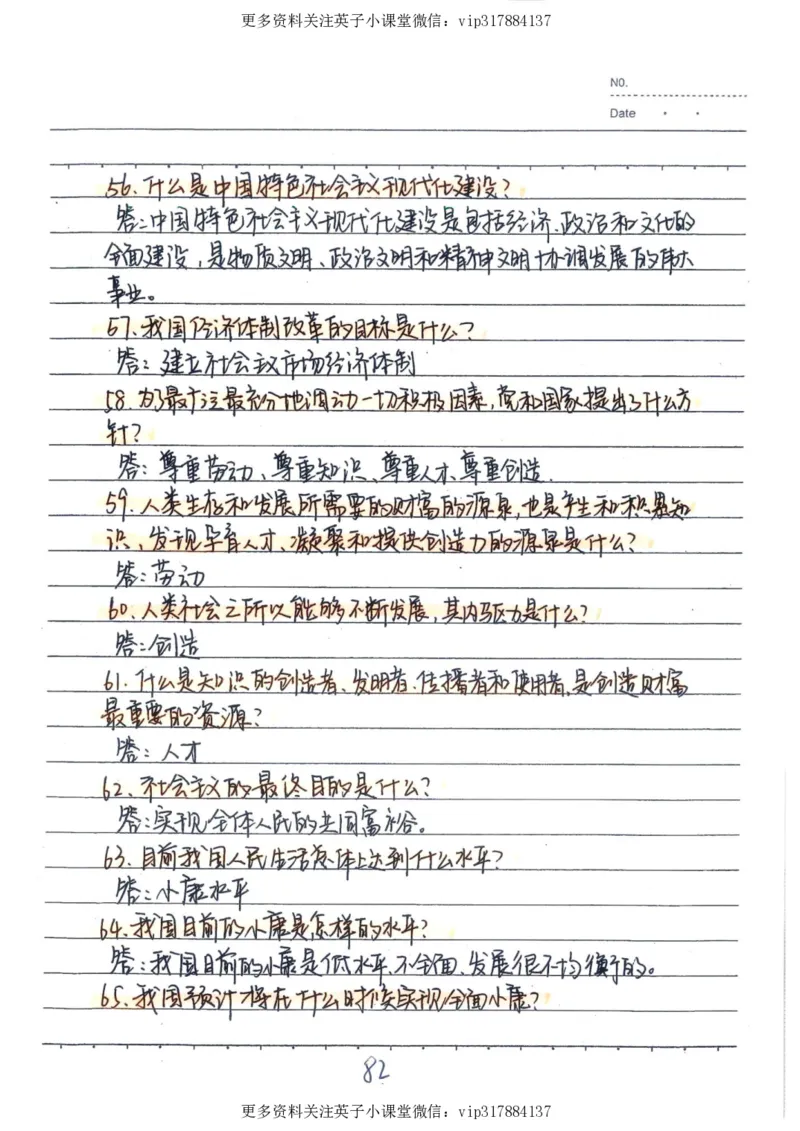 更多资料关注英子小课堂微信：vip317884137
NO.
Date
56、什么是中国特色社会主义现代化建设？
答：中国特色社会主义现代化建设是包括经济、政治和文化的
全面建设，是物质文明、政治文明和精神文明协调发展的伟大
事业。
57、我国经济体制改革的目标是什么？
答：建立社会主义市场经济体制
58、为了最广泛最充分地调动一切积极因素，党和国家提出了什么方
针？
答：尊重劳动、尊重知识、尊重人才、尊重创造．
59、人类生存和发展所需要的财富的源泉，也是产生和积累知
识、发现孕育人才、凝聚和提供创造力的源泉是什么？
答：劳动
60、人类社会之所以能够不断发展，其内驱力是什么？
答：创造
61、什么是知识的创造者、发明者、传播者和使用者，是创造财富
最重要的资源？
答：人才
62、社会主义的最终目的是什么？
答：实现全体人民的共同富裕。
63、目前我国人民生活总体上达到什么水平？
答：小康水平
64、我国目前的小康是怎样的水平？
答：我国目前的小康是低水平、不全面、发展很不均衡的。
65、我国预计将在什么时候实现全面小康？
82
更多资料关注英子小课堂微信：vip317884137